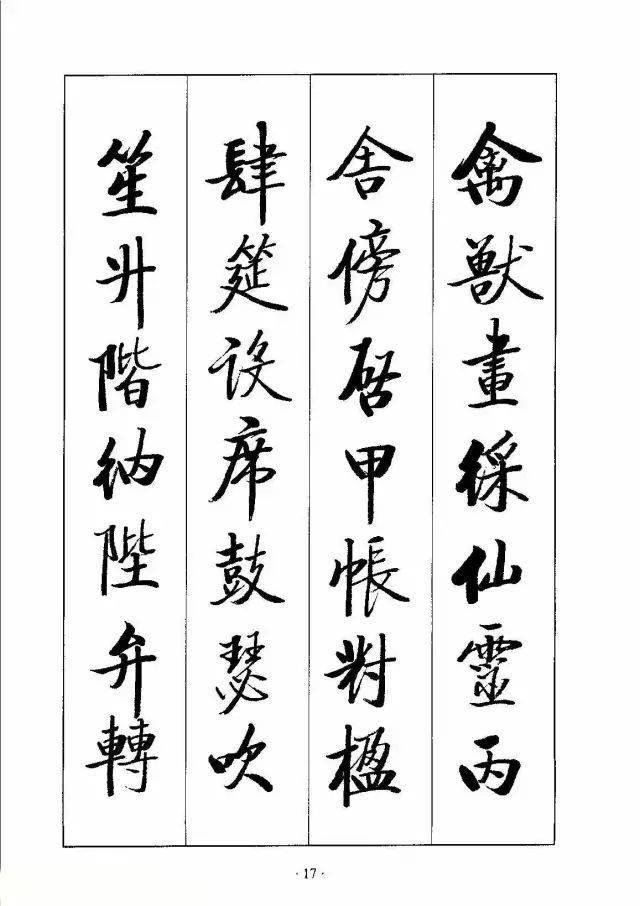 禽獸畫綵仙靈丙
舍傍啓甲帳對楹
肆筵設席鼓瑟吹
笙升階納陛弁轉
·17·